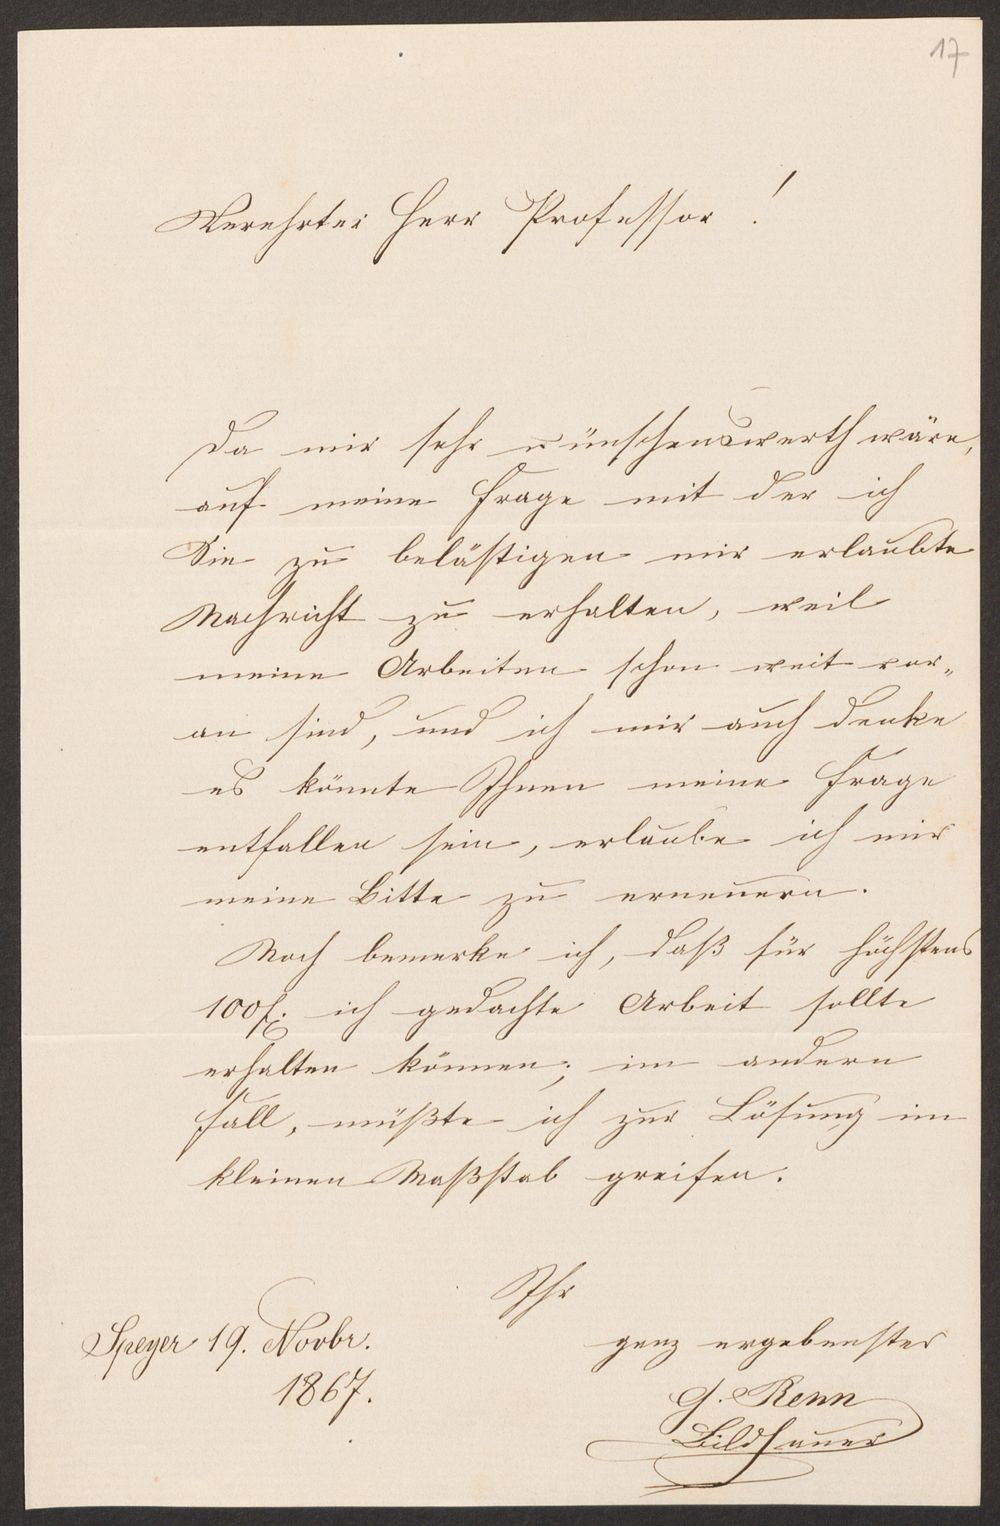 17
Verehrter Herr Professor!
Da mir sehr wünschenswerth wäre,
auf meine Frage mit der ich
Sie zu belästigen mir erlaubte
Nachricht zu erhalten, weil
meine Arbeiten schon weit vor„
an sind, und ich mir auch denke
es könnte Ihnen meine Frage
entfallen sein, erlaube ich mir
meine Bitte zu erneuern.
Noch bemerke ich, daß für höchstens
100f. ich gedachte Arbeit sollte
erhalten können; im andern
Fall, müßte ich zur Lösung im
kleinen Maßstab greifen.
Ihr
ganz ergebenster
G. Renn
Bildhauer
Speyer 19. Novbr.
1867.